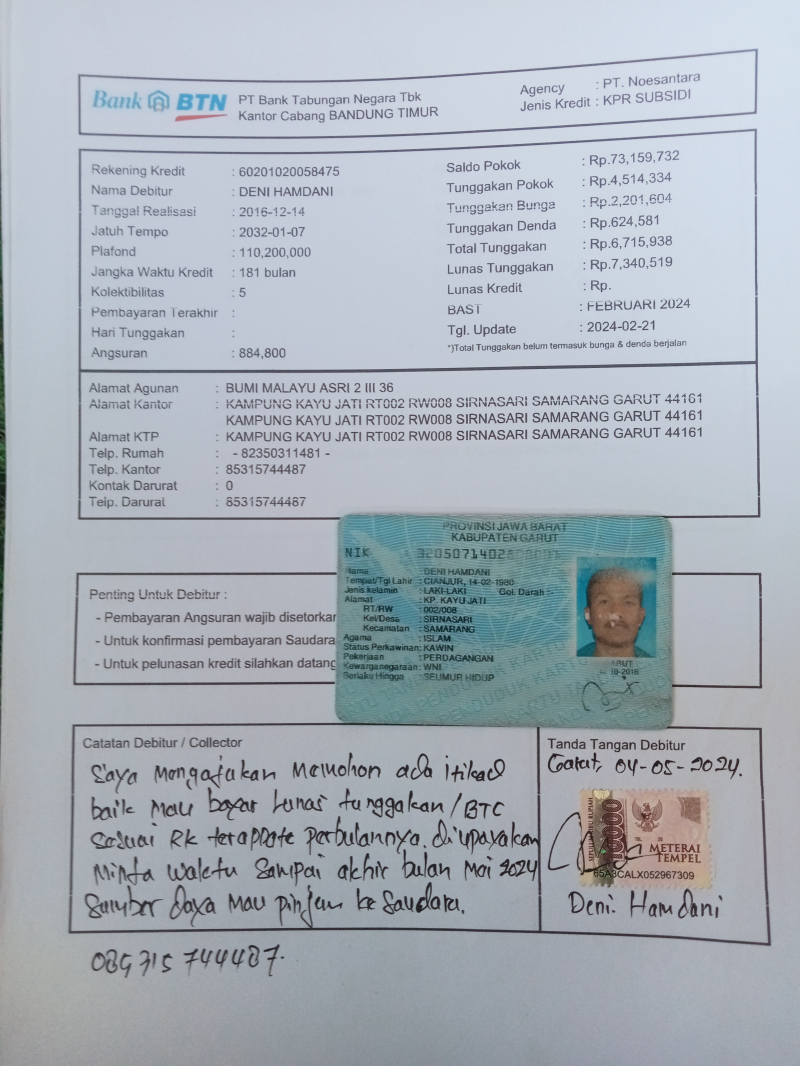 Bank BTN
PT Bank Tabungan Negara Tbk
Kantor Cabang BANDUNG TIMUR
Agency : PT. Noesantara
Jenis Kredit : KPR SUBSIDI
Rekening Kredit : 60201020058475
Nama Debitur : DENI HAMDANI
Tanggal Realisasi : 2016-12-14
Jatuh Tempo : 2032-01-07
Plafond : 110,200,000
Jangka Waktu Kredit : 181 bulan
Kolektibilitas : 5
Pembayaran Terakhir :
Hari Tunggakan :
Angsuran : 884,800
Saldo Pokok : Rp.73,159,732
Tunggakan Pokok : Rp.4,514,334
Tunggakan Bunga : Rp.2,201,604
Tunggakan Denda : Rp.624,581
Total Tunggakan : Rp.6,715,938
Lunas Tunggakan : Rp.7,340,519
Lunas Kredit : Rp.
BAST : FEBRUARI 2024
Tgl. Update : 2024-02-21
*)Total Tunggakan belum termasuk bunga & denda berjalan
Alamat Agunan : BUMI MALAYU ASRI 2 III 36
Alamat Kantor : KAMPUNG KAYU JATI RT002 RW008 SIRNASARI SAMARANG GARUT 44161
KAMPUNG KAYU JATI RT002 RW008 SIRNASARI SAMARANG GARUT 44161
Alamat KTP : KAMPUNG KAYU JATI RT002 RW008 SIRNASARI SAMARANG GARUT 44161
Telp. Rumah : - 82350311481 -
Telp. Kantor : 85315744487
Kontak Darurat : 0
Telp. Darurat : 85315744487
PROVINSI JAWA BARAT
KABUPATEN GARUT
NIK
Nama : DENI HAMDANI
Tempat/Tgl Lahir : CIANJUR, 14-02-1980
Jenis kelamin : LAKI-LAKI Gol. Darah :-
Alamat : KP. KAYU JATI
RT/RW : 002/008
Kel/Desa : SIRNASARI
Kecamatan : SAMARANG
Agama : ISLAM
Status Perkawinan: KAWIN
Pekerjaan : PERDAGANGAN
Kewarganegaraan: WNI
Berlaku Hingga : SEUMUR HIDUP
Penting Untuk Debitur :
- Pembayaran Angsuran wajib disetorkan
- Untuk konfirmasi pembayaran Saudara
- Untuk pelunasan kredit silahkan datang
Catatan Debitur / Collector
Saya Mengajukan Memohon ada itikad
baik Mau bayar Lunas tunggakan / BTC
sesuai RK perbulannya. diupayakan
Minta waktu Sampai akhir bulan Mei 2024
Sumber daya Mau pinjem ke Saudara.
Tanda Tangan Debitur
Garut, 04-05-2024.
METERAI
TEMPEL
10000
65A3CALX052967309
Deni. Hamdani